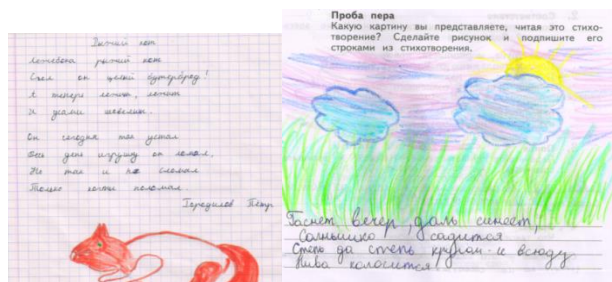 Рыжий кот
Лежебока рыжий кот
Съел он целый бутерброд!
А теперь лежит, лежит
И усами шевелит.
Он сегодня так устал
Весь день игрушку он ломал,
Но так и не сломал
Только когти поломал.
Городилов Пётр
Проба пера
Какую картину вы представляете, читая это стихо-
творение? Сделайте рисунок и подпишите его
строками из стихотворения.
Гаснет вечер, даль синеет,
Солнышко садится
Степь да степь кругом и всюду
Нива колосится.